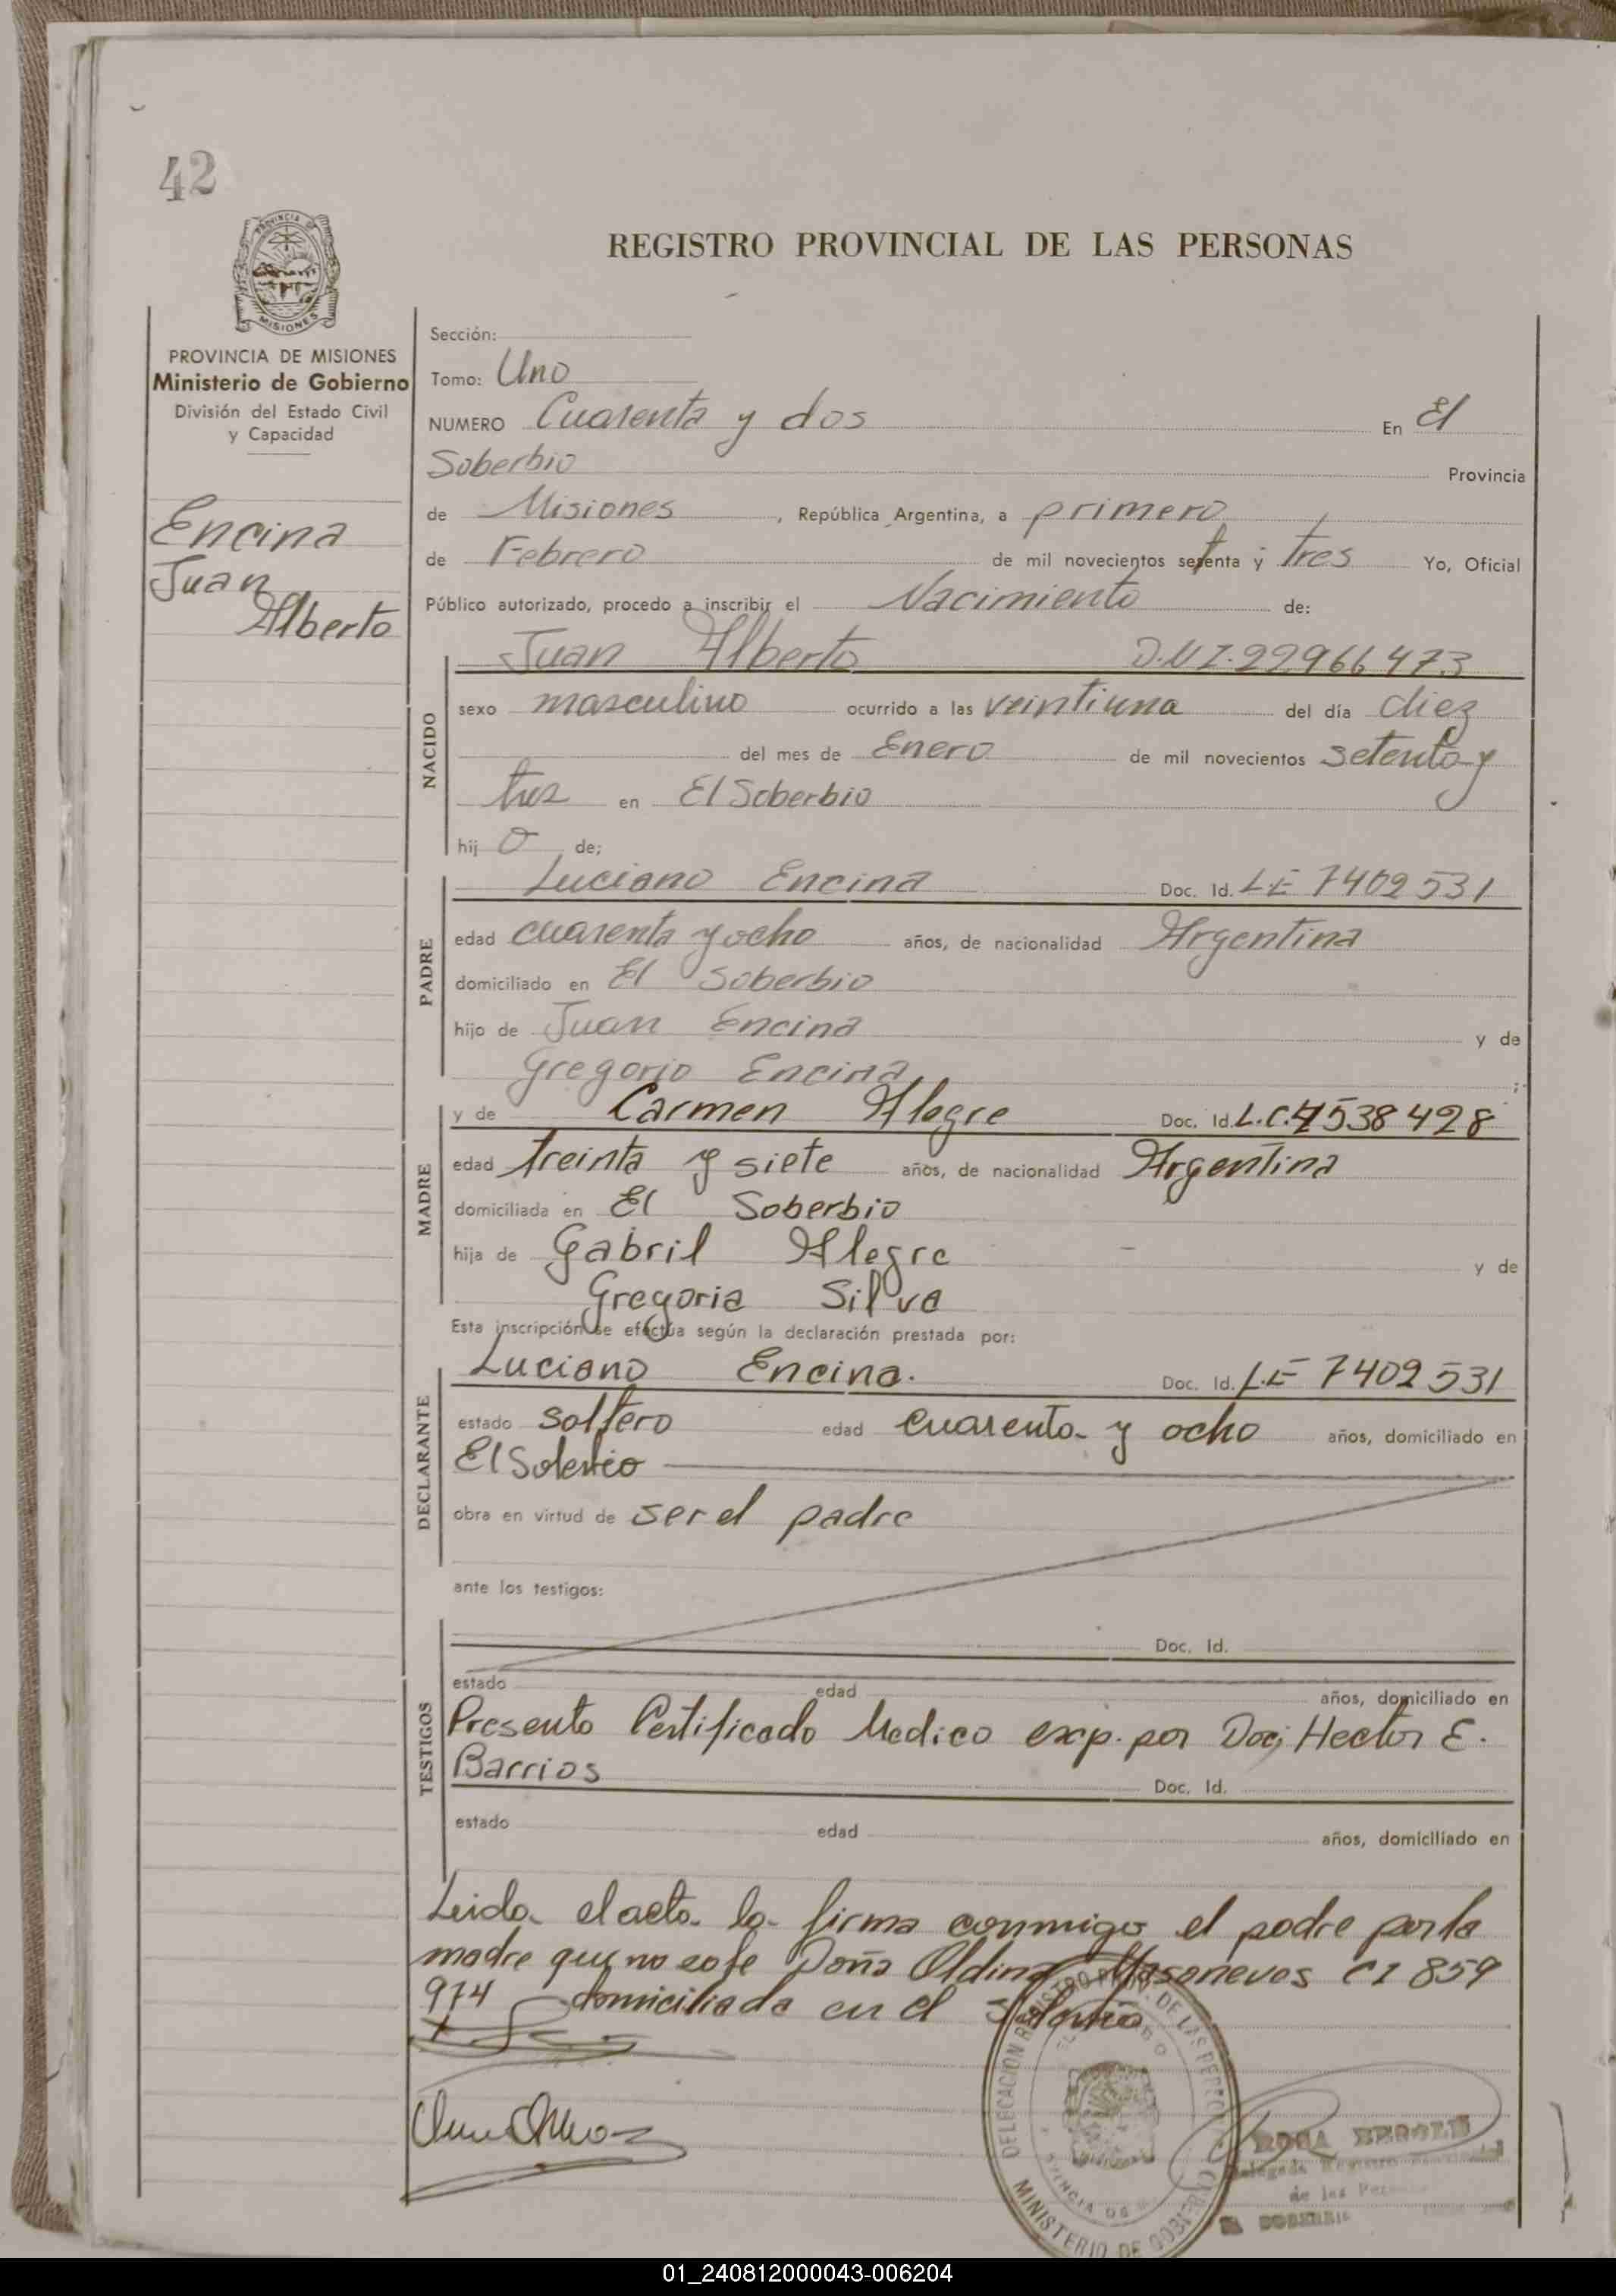 42
PROVINCIA DE
MISIONES
REGISTRO PROVINCIAL DE LAS PERSONAS
PROVINCIA DE MISIONES
Ministerio de Gobierno
División del Estado Civil
y Capacidad
Encina
Juan
Alberto
Sección:
Tomo: Uno
NUMERO Cuarenta y dos En El
Soberbio Provincia
de Misiones, República Argentina, a primero
de Febrero de mil novecientos setenta y tres Yo, Oficial
Público autorizado, procedo a inscribir el Nacimiento de:
Juan Alberto D.N.I. 22966473
NACIDO
sexo masculino ocurrido a las veintiuna del día diez
del mes de Enero de mil novecientos setenta y
tres en El Soberbio
hij o de;
PADRE
Luciano Encina Doc. Id. LE 7402531
edad cuarenta y ocho años, de nacionalidad Argentina
domiciliado en El Soberbio
hijo de Juan Encina y de
Gregorio Encina;
MADRE
y de Carmen Alegre Doc. Id. L.C. 4538428
edad treinta y siete años, de nacionalidad Argentina
domiciliada en El Soberbio
hija de Gabril Alegre y de
Gregoria Silva
Esta inscripción se efectúa según la declaración prestada por:
DECLARANTE
Luciano Encina. Doc. Id. L.E 7402531
estado soltero edad cuarenta y ocho años, domiciliado en
El Soberbio
obra en virtud de ser el padre
ante los testigos:
TESTIGOS
Doc. Id.
estado edad años, domiciliado en
Presento Certificado Medico exp. por Doc; Hector E.
Barrios Doc. Id.
estado edad años, domiciliado en
Leida el acta la firma conmigo el padre por la
madre que no sabe Doña Oldina CI 859
974 domiciliada en el Soberbio
DELEGACION REGISTRO PROV. DE LAS PERSONAS
MINISTERIO DE GOBIERNO
ROSA
Delegada Registro Provincial
de las Personas
EL SOBERBIO
01_240812000043-006204